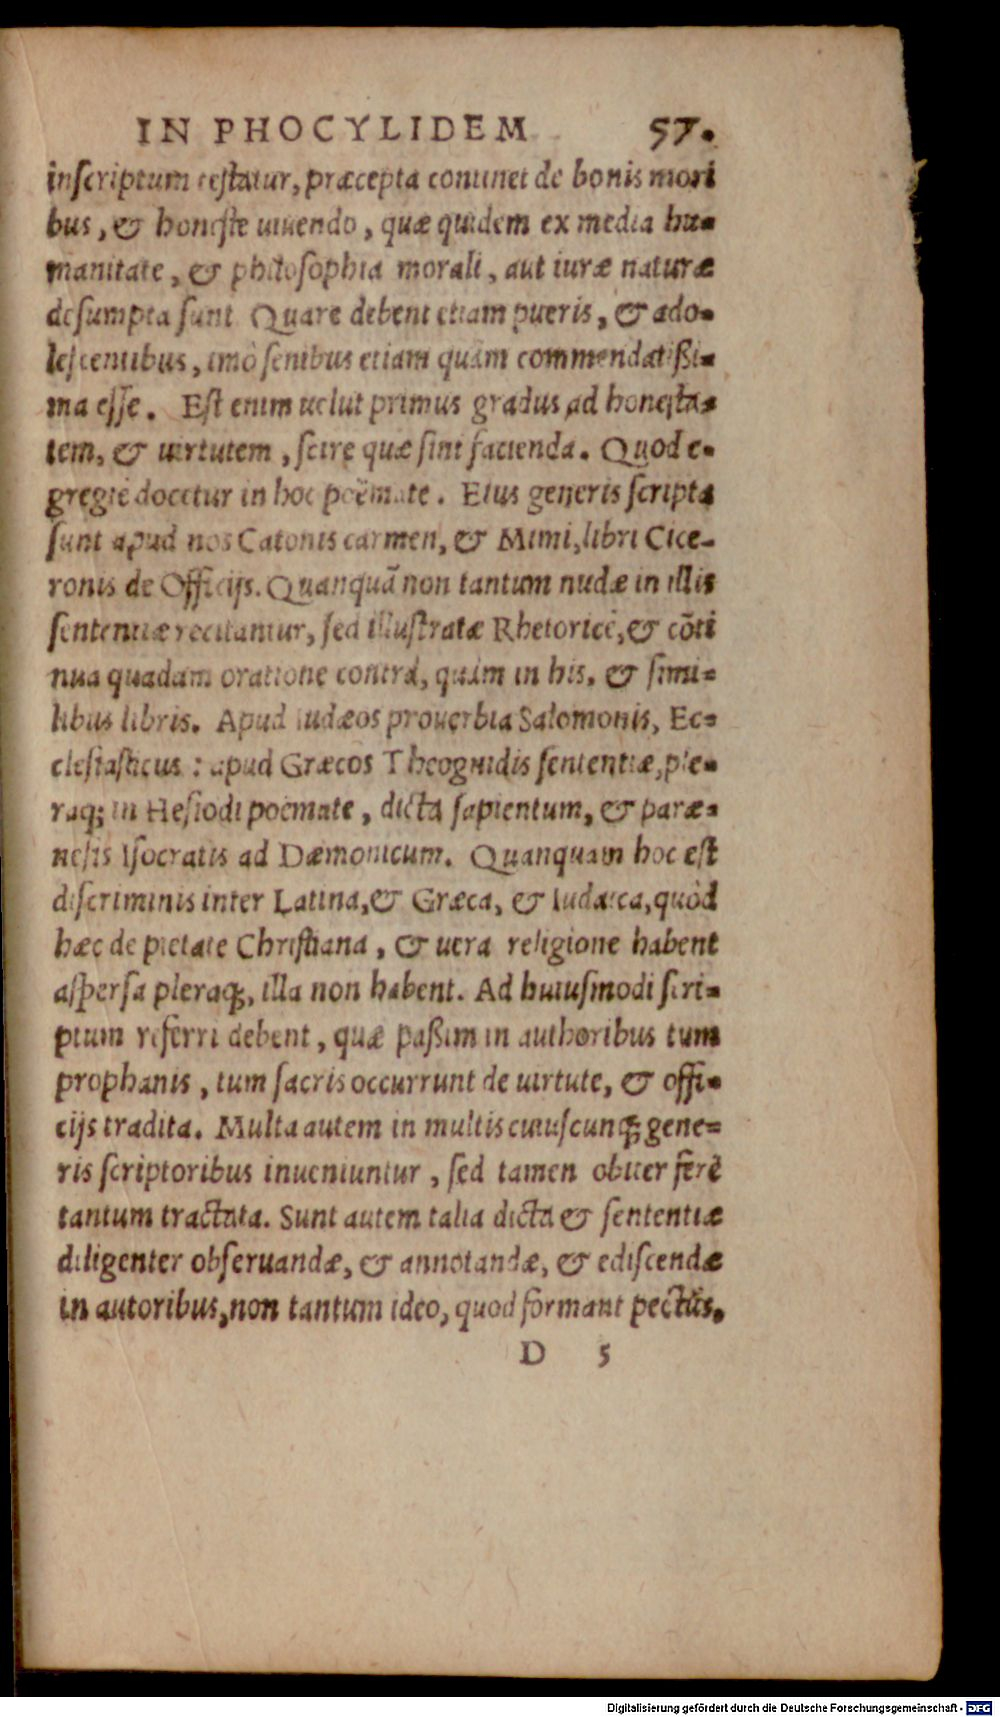 IN PHOCYLIDEM 57.
inscriptum testatur, præcepta continet de bonis mori
bus, & honeste uiuendo, quæ quidem ex media hu-
manitate, & philosophia morali, aut iuræ naturæ
desumpta sunt Quare debent etiam pueris, & ado-
lescentibus, imò senibus etiam quàm commendatißi-
ma esse. Est enim uelut primus gradus ad honesta-
tem, & uirtutem, scire quæ sint facienda. Quod e-
gregiè docetur in hoc poëmate. Eius generis scripta
sunt apud nos Catonis carmen, & Mimi, libri Cice-
ronis de Officijs. Quanquã non tantum nudæ in illis
sententiæ recitantur, sed illustratæ Rhetoricè, & cõti
nua quadam oratione contrà, quàm in his, & simi-
libus libris. Apud Iudæos prouerbia Salomonis, Ec-
clesiasticus: apud Græcos Theognidis sententiæ, ple-
raq; in Hesiodi poëmate, dicta sapientum, & paræ-
nesis Isocratis ad Dæmonicum. Quanquam hoc est
discriminis inter Latina, & Græca, & Iudaica, quòd
hæc de pietate Christiana, & uera religione habent
aspersa pleraq;, illa non habent. Ad huiusmodi scri-
ptum referri debent, quæ paßim in authoribus tum
prophanis, tum sacris occurrunt de uirtute, & offi-
cijs tradita. Multa autem in multis cuiuscunq; gene-
ris scriptoribus inueniuntur, sed tamen obiter ferè
tantum tractata. Sunt autem talia dicta & sententiæ
diligenter obseruandæ, & annotandæ, & ediscendæ
in autoribus, non tantum ideo, quod formant pectus.
D 5
Digitalisierung gefördert durch die Deutsche Forschungsgemeinschaft - DFG